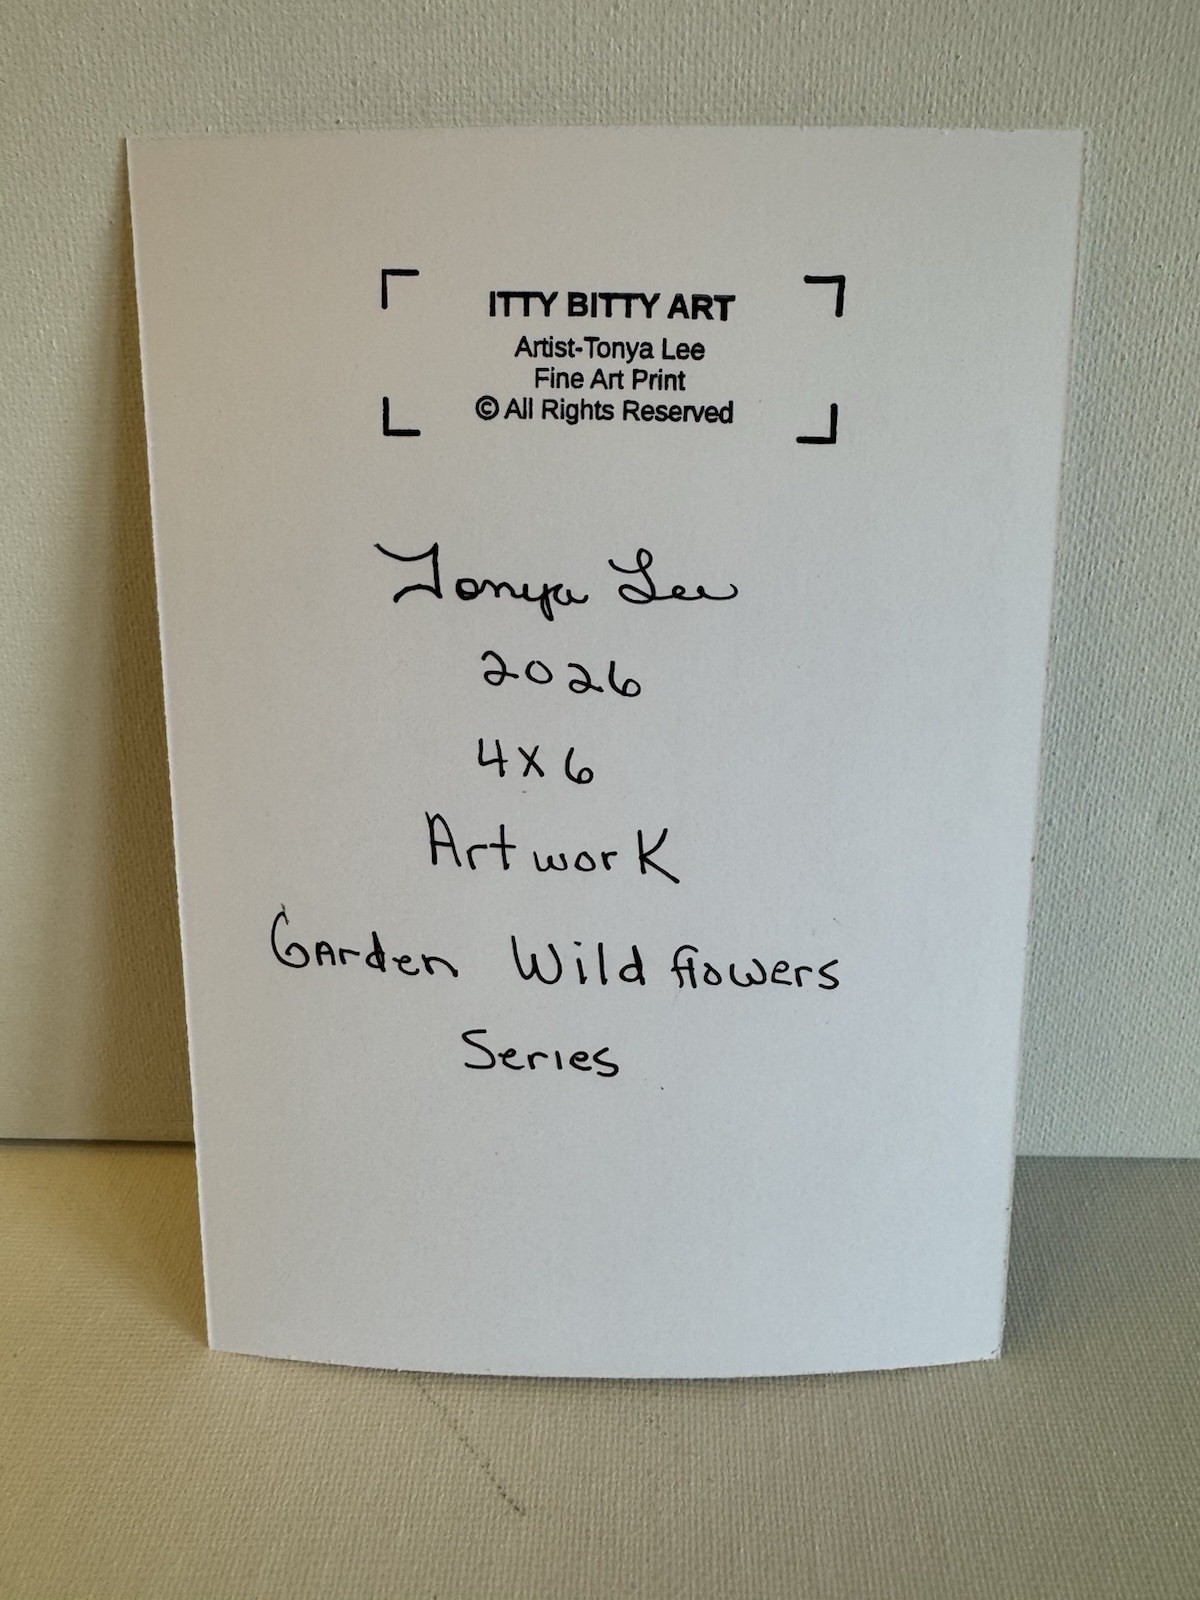 ITTY BITTY ART
Artist-Tonya Lee
Fine Art Print
© All Rights Reserved
Tonya Lee
2026
4x6
Artwork
Garden Wildflowers
Series